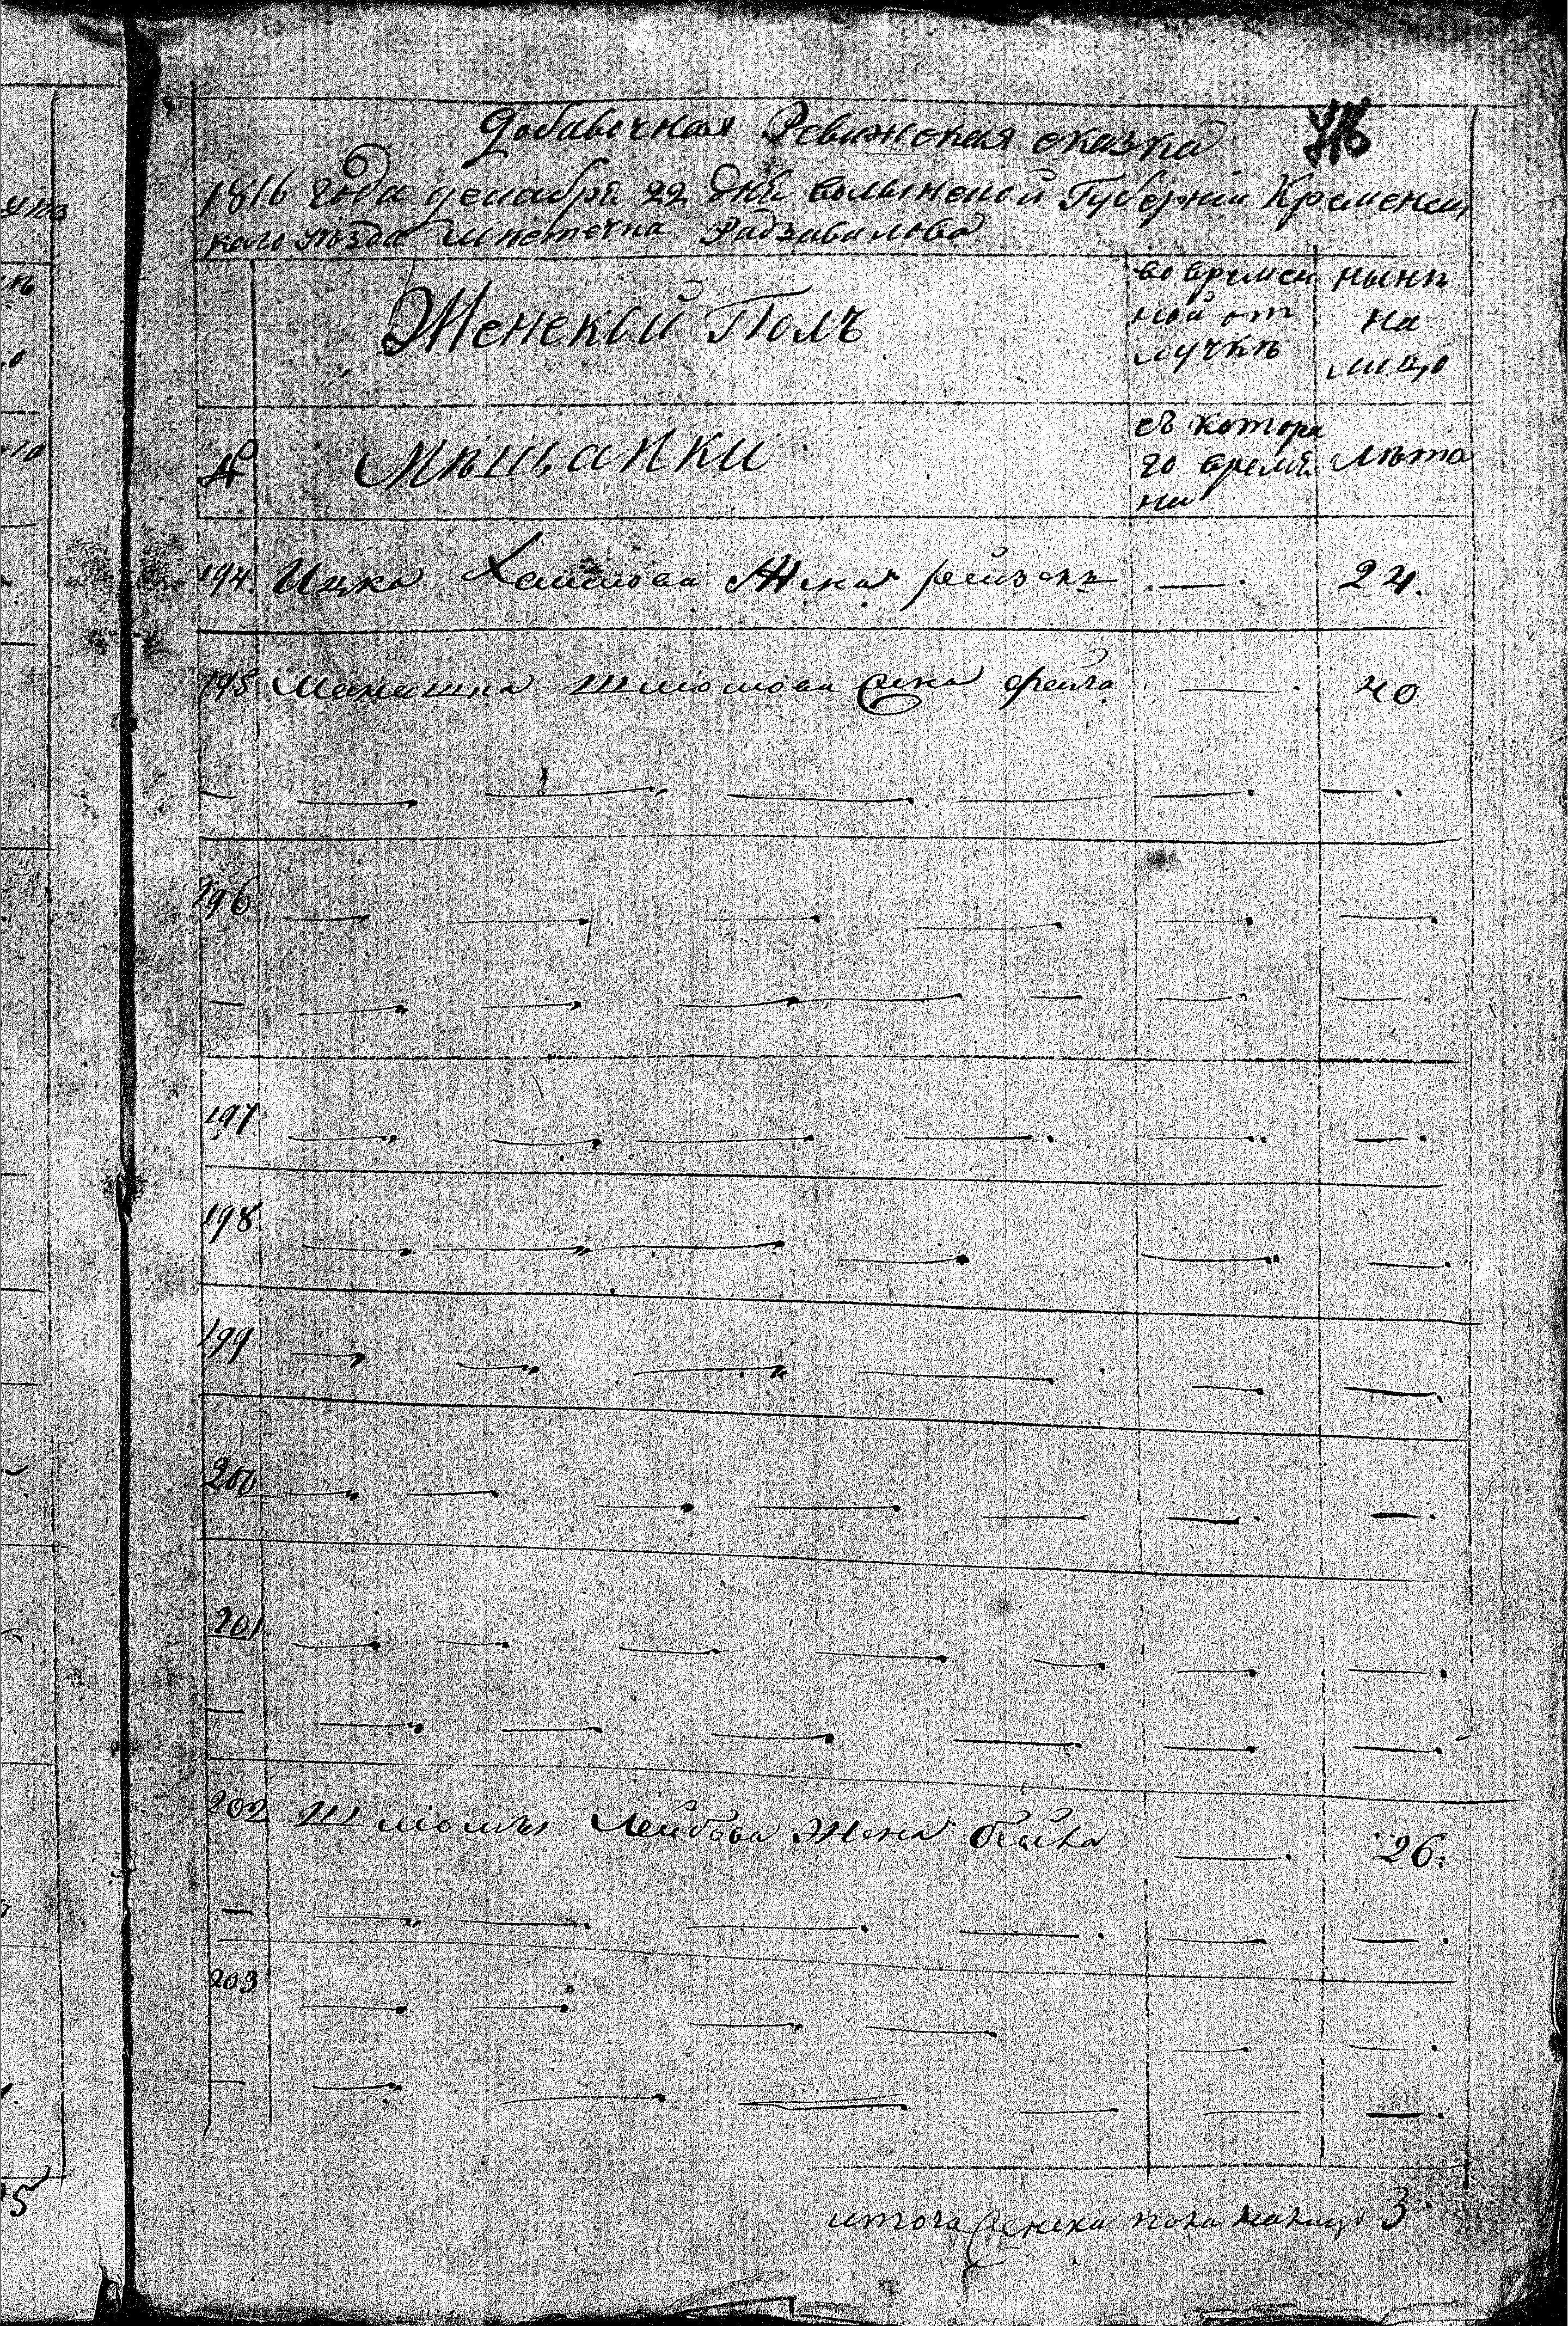 Добавочная Ревижская сказка
1816 года декабря 22 дня волынской Губерніи Кременец
каго уѣзда мѣстечка Радзавилова
Женской Полъ
во времен
ной от
лучкѣ
нынѣ
на
лицо
№
Мѣщанки
съ котора
го время
ни
Лѣта
194. Ицка Хаимова Жена рейза — 24.
195. Манашка Шлиомова жена фейга — 40
— — — — — — —
196 — — — — — —
— — — — — — —
197 — — — — — —
198 — — — — — —
199 — — — — — —
200 — — — — — — —
201 — — — — — — —
— — — — — — —
202 Шлиомы Лейбова Жена бейла — 26.
— — — — — — —
203 — — — — — —
— — — — — — —
итого женска пола налицо 3
5